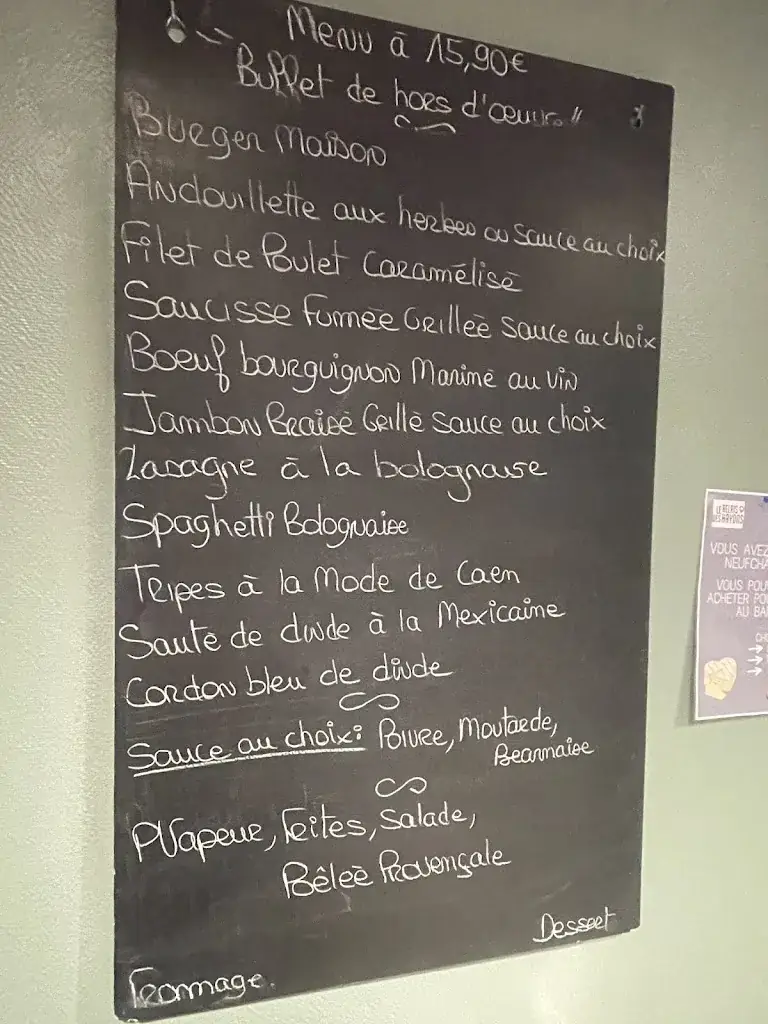 Menu à 15,90€
Buffet de hors d'œuvre "
Burger Maison
Andouillette aux herbes ou Sauce au choix
Filet de Poulet Caramélisé
Saucisse Fumée Grillée Sauce au choix
Boeuf bourguignon Mariné au vin
Jambon Braisé Grillé Sauce au choix
Lasagne à la bolognaise
Spaghetti Bolognaise
Tripes à la Mode de Caen
Sauté de dinde à la Mexicaine
Cordon bleu de dinde
Sauce au choix: Poivre, Moutarde,
Bearnaise
P.Vapeur, Frites, Salade,
Pôêleé Provençale
Dessert
Frommage.
LE RELAIS
DES HAYONS
VOUS AVEZ
NEUFCHA
VOUS POU
ACHETER PO
AU BA